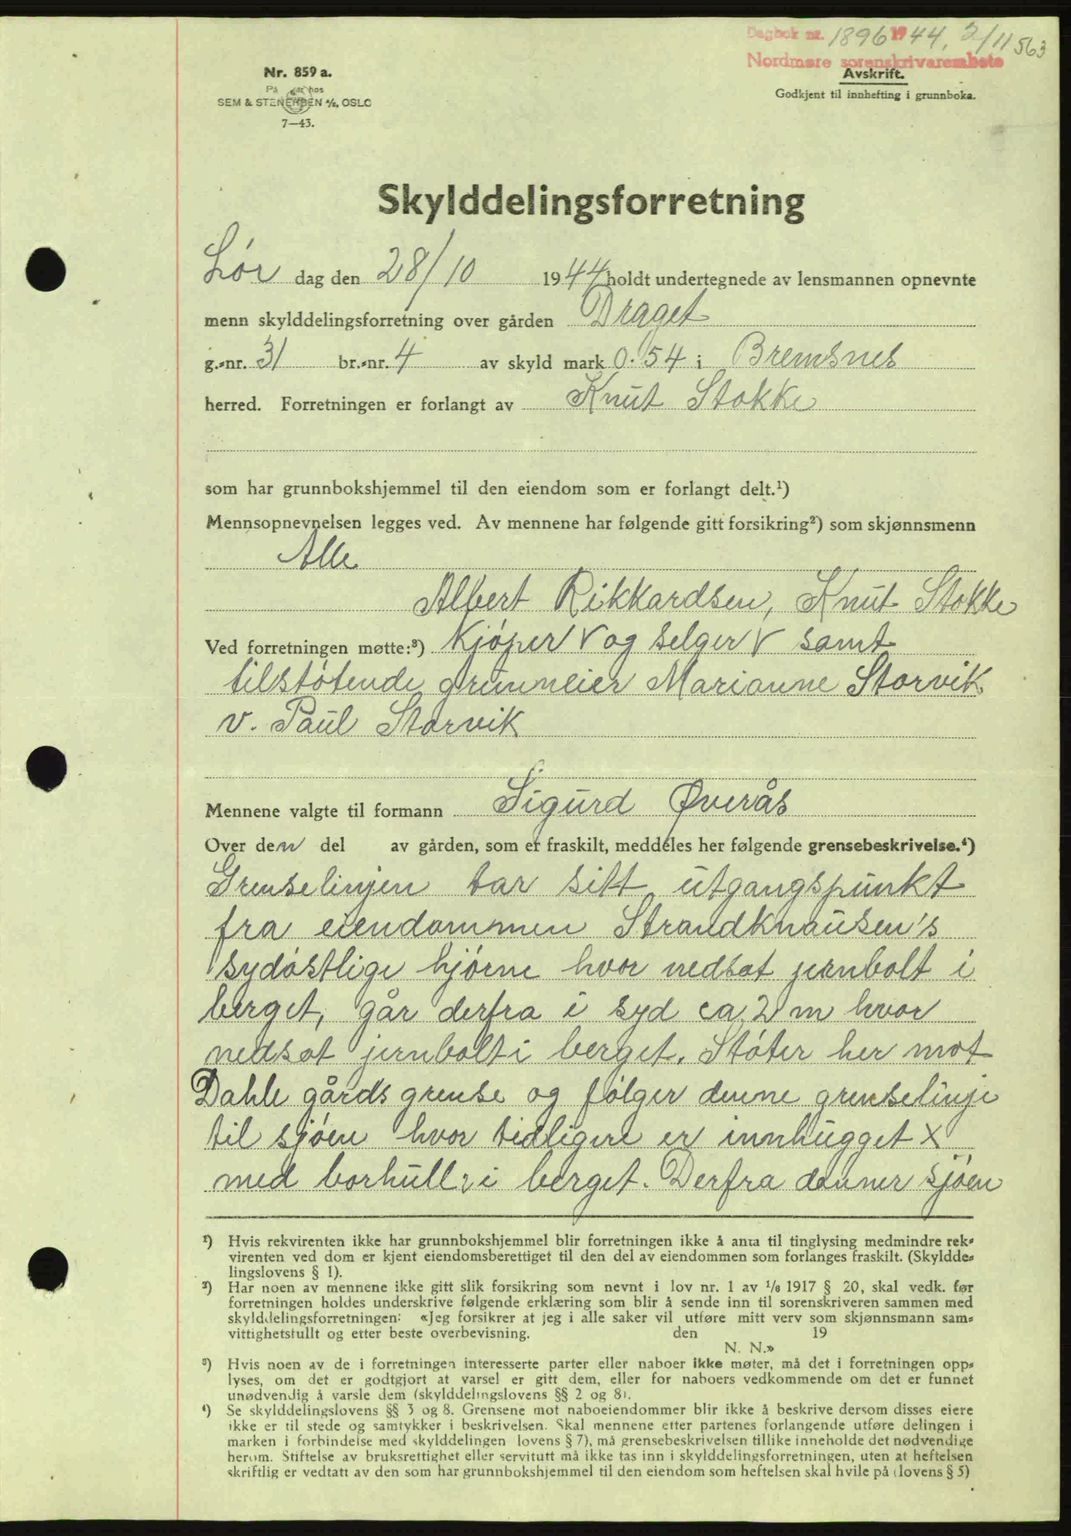 Dagbok nr. 1896 1944, 2/11 563
Nordmøre sorenskrivarembete
Nr. 859 a.
SEM & STENERSEN A/S, OSLO
7—43.
Avskrift.
Godkjent til innhefting i grunnboka.
Skylddelingsforretning
Lør dag den 28/10 1944 holdt undertegnede av lensmannen opnevnte
menn skylddelingsforretning over gården Draget
g.-nr. 31 br.-nr. 4 av skyld mark 0.54 i Bremsnes
herred. Forretningen er forlangt av Knut Stokke
som har grunnbokshjemmel til den eiendom som er forlangt delt.¹)
Mennsopnevnelsen legges ved. Av mennene har følgende gitt forsikring²) som skjønnsmenn
Alle
Albert Rikkardsen, Knut Stokke
Ved forretningen møtte:³) Kjöper V og selger V samt
tilstötende grunneier Marianne Storvik
v. Paul Storvik
Mennene valgte til formann Sigurd Øverås
Over den del av gården, som er fraskilt, meddeles her følgende grensebeskrivelse.⁴)
Grenselinjen tar sitt utgangspunkt
fra eiendommen Strandknausen's
sydöstlige hjörne hvor nedsat jernbolt i
berget, går derfra i syd ca. 2 m hvor
nedsat jernbolt i berget. Stöter her mot
Dahle gårds grense og fölger denne grenselinje
til sjöen hvor tidligere er innhugget X
med borhull i berget. Derfra danner sjöen
¹) Hvis rekvirenten ikke har grunnbokshjemmel blir forretningen ikke å anta til tinglysing medmindre rek-
virenten ved dom er kjent eiendomsberettiget til den del av eiendommen som forlanges fraskilt. (Skyldde-
lingslovens § 1).
²) Har noen av mennene ikke gitt slik forsikring som nevnt i lov nr. 1 av 1/6 1917 § 20, skal vedk. før
forretningen holdes underskrive følgende erklæring som blir å sende inn til sorenskriveren sammen med
skylddelingsforretningen: «Jeg forsikrer at jeg i alle saker vil utføre mitt verv som skjønnsmann sam-
vittighetsfullt og etter beste overbevisning. den 19
N. N.»
³) Hvis noen av de i forretningen interesserte parter eller naboer ikke møter, må det i forretningen opp-
lyses, om det er godtgjort at varsel er gitt dem, eller for naboers vedkommende om det er funnet
unødvendig å varsle dem (skylddelingslovens §§ 2 og 8).
⁴) Se skylddelingslovens §§ 3 og 8. Grensene mot naboeiendommer blir ikke å beskrive dersom disses eiere
ikke er til stede og samtykker i beskrivelsen. Skal mennene etter partenes forlangende utføre delingen i
marken i forbindelse med skylddelingen (lovens § 7), må grensebeskrivelsen tillike inneholde det nødvendige
herom. Stiftelse av bruksrettighet eller servitutt må ikke tas inn i skylddelingsforretningen, uten at heftelsen
skriftlig er vedtatt av den som har grunnbokshjemmel til den eiendom som heftelsen skal hvile på (lovens § 5)